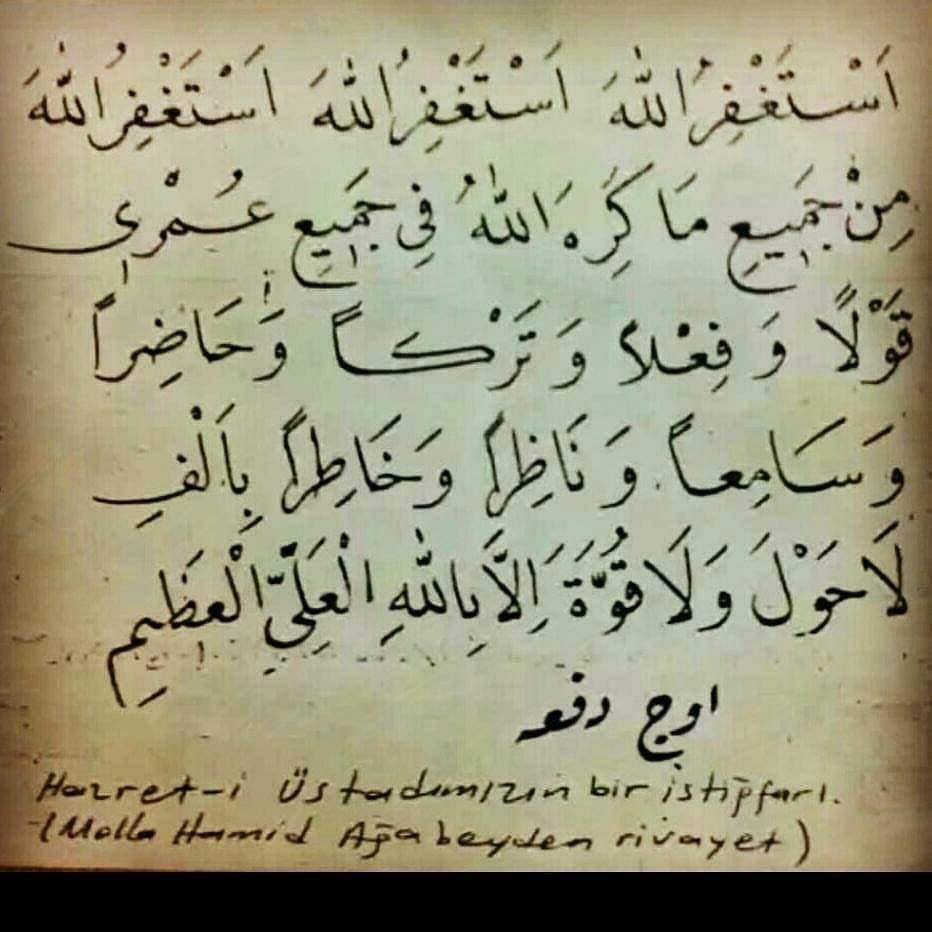 اَسْتَغْفِرُ اللّٰهَ اَسْتَغْفِرُ اللّٰهَ اَسْتَغْفِرُ اللّٰهَ
مِنْ جَمِيعِ مَا كَرِهَ اللّٰهُ فِي جَمِيعِ عُمْرِى
قَوْلًا وَ فِعْلاً وَ تَرْكاً وَحَاضِراً
وَ سَامِعاً وَ نَاظِراً وَخَاطِراً بِاَلْفِ
لَاحَوْلَ وَلَا قُوَّةَ اِلَّا بِاللّٰهِ الْعَلِىِّ الْعَظِيمِ
اوج دفعه
Hazret-i Üstadımızın bir istiğfarı.
(Molla Hamid Ağabeyden rivayet)